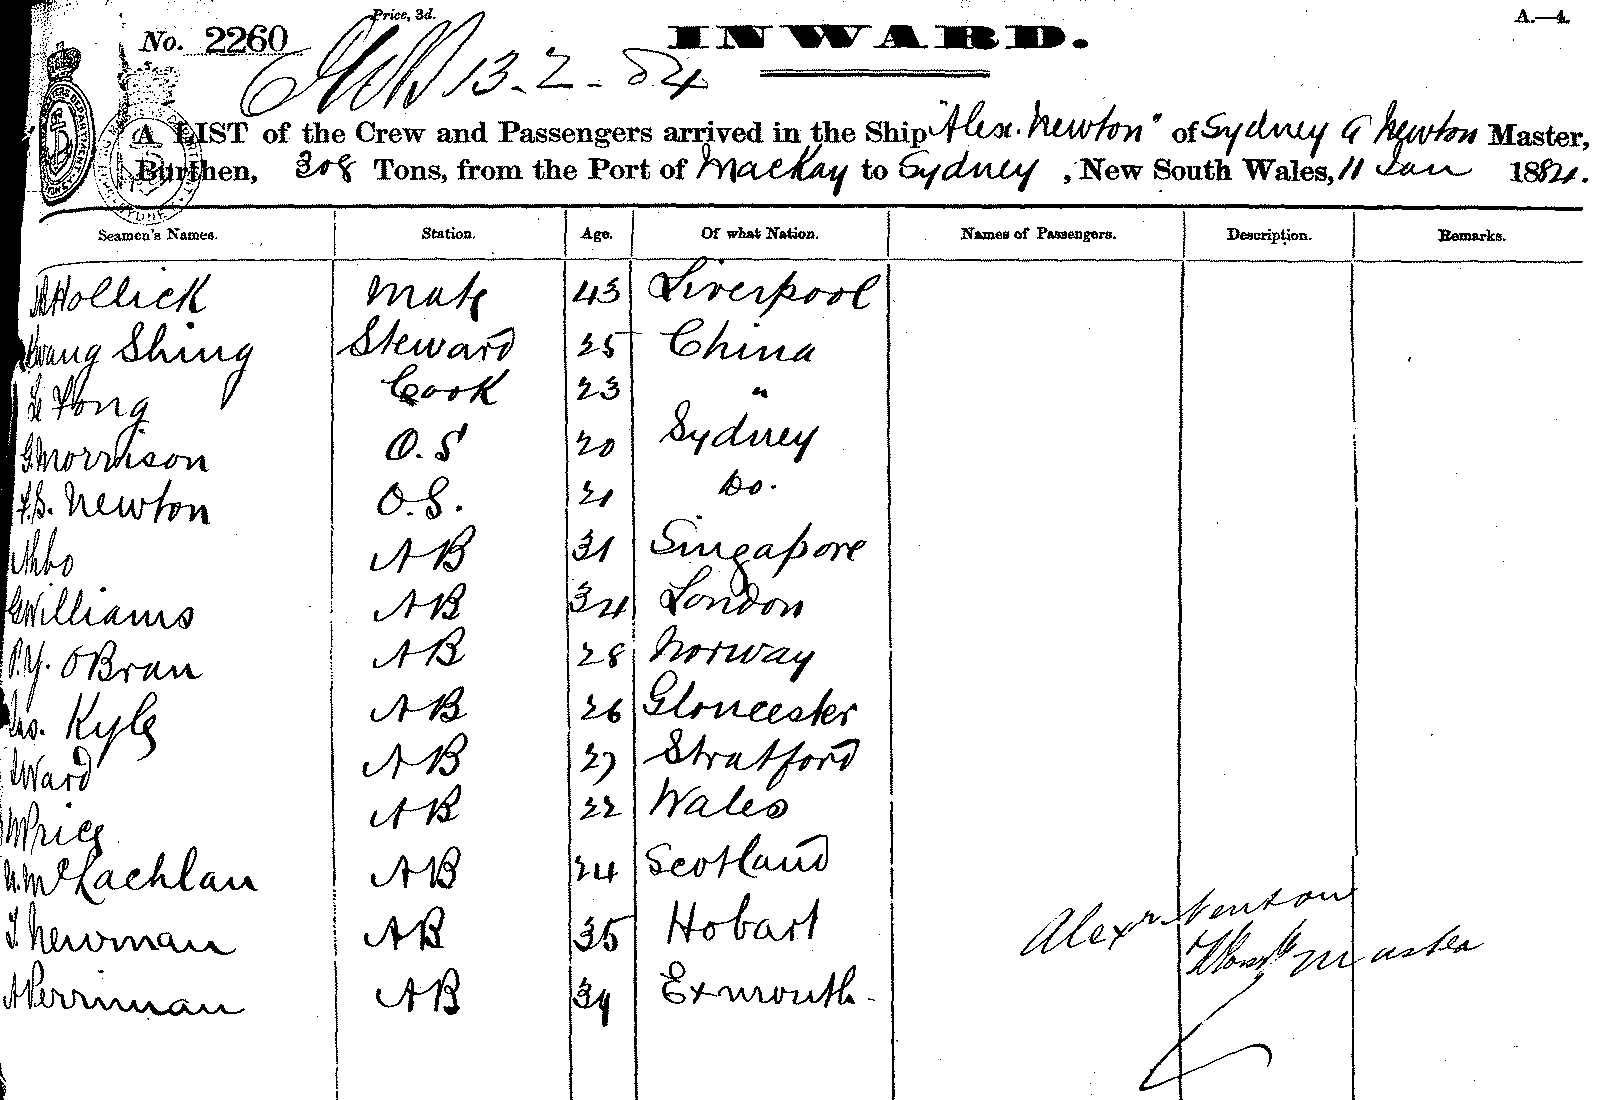 Price, 3d.
A.—4.
No. 2260
INWARD.
13.2.84
A LIST of the Crew and Passengers arrived in the Ship "Alex. Newton" of Sydney A Newton Master,
Burthen, 308 Tons, from the Port of Mackay to Sydney, New South Wales, 11 Jan 1884.
Seamen's Names. Station. Age. Of what Nation. Names of Passengers. Description. Remarks.
Hollick Mate 43 Liverpool
Kwang Shing Steward 25 China
Le Fong Cook 23 "
G Morrison O.S 20 Sydney
F.S. Newton O.S. 21 Do.
AB 31 Singapore
G Williams AB 34 London
P.Y. OBran AB 28 Norway
Jas. Kyle AB 26 Gloucester
Ward AB 27 Stratford
W Price AB 22 Wales
McLachlan AB 24 Scotland
T Newman AB 35 Hobart
A Perriman AB 39 Exmouth.
Alexr Newton
Master